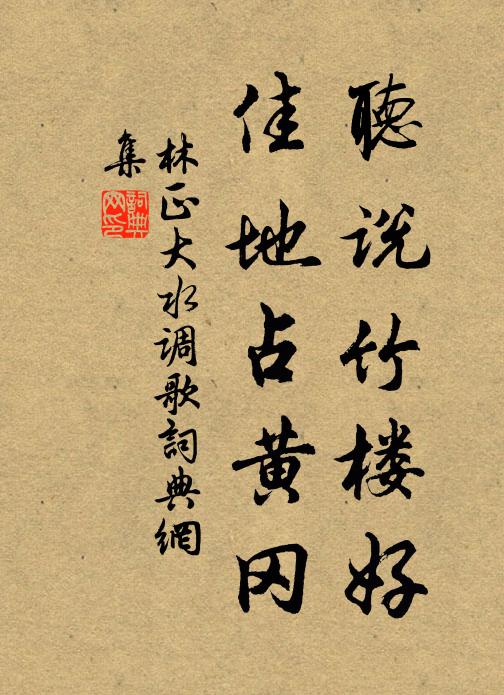 聽说竹楼好
佳地占黄冈
林正大水调歌詞典網
集
詞典
网印